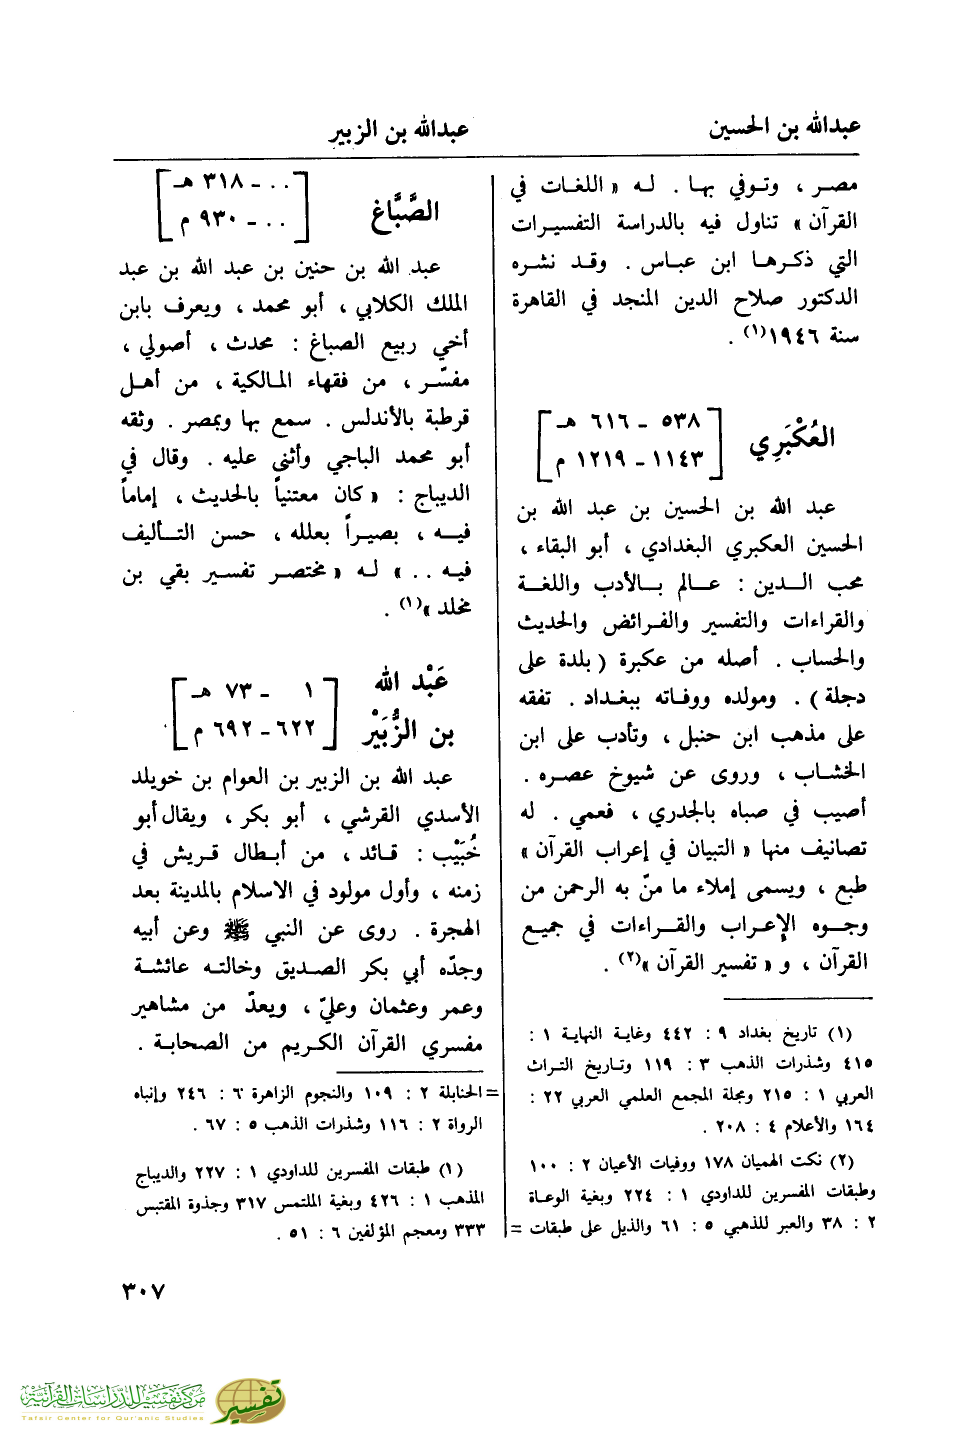 عبدالله بن الحسين
عبدالله بن الزبير
مصر ، وتوفي بها . له « اللغات في
القرآن » تناول فيه بالدراسة التفسيرات
التي ذكرها ابن عباس . وقد نشره
الدكتور صلاح الدين المنجد في القاهرة
سنة ١٩٤٦(١) .
العُكْبَرِي
[ ٥٣٨ ـ ٦١٦ هـ
١١٤٣ ـ ١٢١٩ م ]
عبد الله بن الحسين بن عبد الله بن
الحسين العكبري البغدادي ، أبو البقاء ،
محب الدين : عالم بالأدب واللغة
والقراءات والتفسير والفرائض والحديث
والحساب . أصله من عكبرة ( بلدة على
دجلة ) . ومولده ووفاته ببغداد . تفقه
على مذهب ابن حنبل ، وتأدب على ابن
الخشاب ، وروى عن شيوخ عصره .
أصيب في صباه بالجدري ، فعمي . له
تصانيف منها « التبيان في إعراب القرآن »
طبع ، ويسمى إملاء ما منّ به الرحمن من
وجوه الإعراب والقراءات في جميع
القرآن ، و « تفسير القرآن »(٢) .
(١) تاريخ بغداد ٩ : ٤٤٢ وغاية النهاية ١ :
٤١٥ وشذرات الذهب ٣ : ١١٩ وتاريخ التراث
العربي ١ : ٢١٥ ومجلة المجمع العلمي العربي ٢٢ :
١٦٤ والأعلام ٤ : ٢٠٨ .
(٢) نكت الهميان ١٧٨ ووفيات الأعيان ٢ : ١٠٠
وطبقات المفسرين للداودي ١ : ٢٢٤ وبغية الوعاة
٢ : ٣٨ والعبر للذهبي ٥ : ٦١ والذيل على طبقات =
الصَّبَّاغ
[ . . ـ ٣١٨ هـ
. . ـ ٩٣٠ م ]
عبد الله بن حنين بن عبد الله بن عبد
الملك الكلابي ، أبو محمد ، ويعرف بابن
أخي ربيع الصباغ : محدث ، أصولي ،
مفسّر ، من فقهاء المالكية ، من أهل
قرطبة بالأندلس . سمع بها وبمصر . وثقه
أبو محمد الباجي وأثنى عليه . وقال في
الديباج : « كان معتنياً بالحديث ، إماماً
فيه ، بصيراً بعلله ، حسن التأليف
فيه .. » له « مختصر تفسير بقي بن
مخلد »(١) .
عَبْد الله
بن الزُّبَيْر
[ ١ ـ ٧٣ هـ
٦٢٢ ـ ٦٩٢ م ]
عبد الله بن الزبير بن العوام بن خويلد
الأسدي القرشي ، أبو بكر ، ويقال أبو
خُبَيْب : قائد ، من أبطال قريش في
زمنه ، وأول مولود في الاسلام بالمدينة بعد
الهجرة . روى عن النبي ﷺ وعن أبيه
وجدّه أبي بكر الصديق وخالته عائشة
وعمر وعثمان وعليّ ، ويعدّ من مشاهير
مفسري القرآن الكريم من الصحابة .
= الحنابلة ٢ : ١٠٩ والنجوم الزاهرة ٦ : ٢٤٦ وإنباه
الرواة ٢ : ١١٦ وشذرات الذهب ٥ : ٦٧ .
(١) طبقات المفسرين للداودي ١ : ٢٢٧ والديباج
المذهب ١ : ٤٢٦ وبغية الملتمس ٣١٧ وجذوة المقتبس
٣٣٣ ومعجم المؤلفين ٦ : ٥١ .
٣٠٧
مركز تفسير للدراسات القرآنية
Tafsir Center for Qur'anic Studies
تفسير